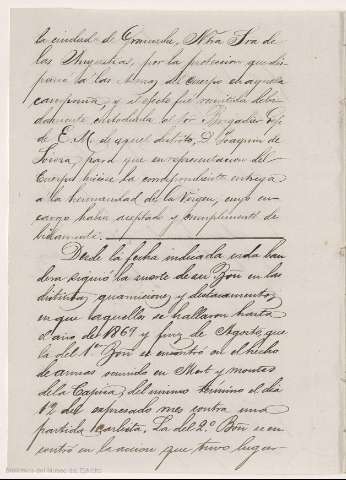 la ciudad de Granada, Ntra Sra de
las Angustias, por la proteccion que dis-
pensó à las armas del cuerpo en aquella
campaña, y al efecto fué remitida debi-
damente custodiada al Sor Brigadier Gefe
de E. M. de aquel distrito, D. Joaquin de
Souza, para que en representacion del
Cuerpo hiciese la correspondiente entrega
a la hermandad de la Virgen, cuyo en-
cargo habia aceptado y cumplimentó de-
bidamente.
Desde la fecha indicada cada ban-
dera siguió la suerte de su Bon en las
distintas guarniciones y destacamentos
en que aquellos se hallaron hasta
el año del 1869 y fines de Agosto, que
la del 1er Bon se encontró en el hecho
de armas ocurrido en Mont y montes
de la Capina, del mismo término el dia
12 del espresado mes contra una
partida carlista. La del 2º Bon se en-
contró en la accion que tuvo lugar